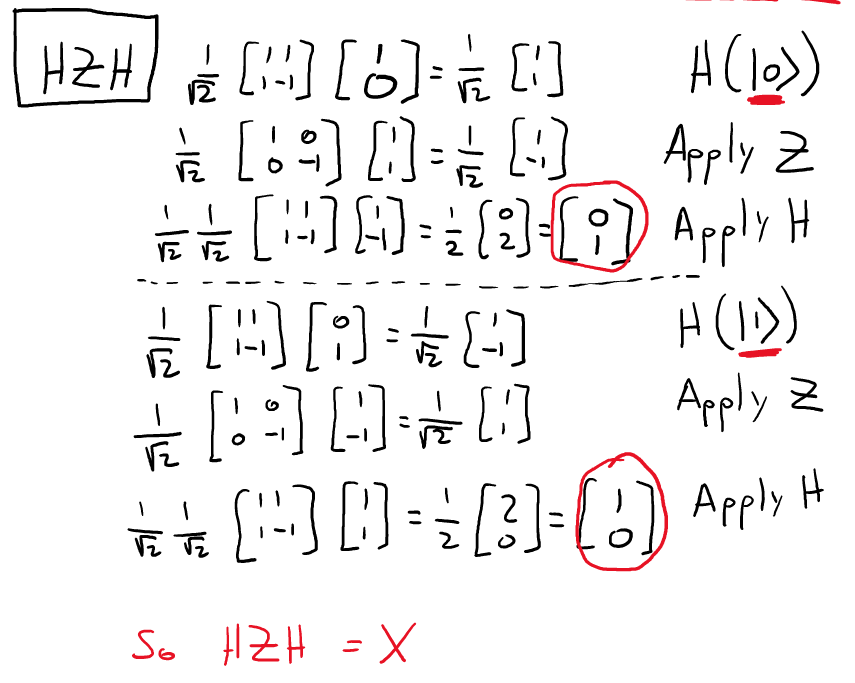 HZH 1/√2 [1 1; 1 -1] [1; 0] = 1/√2 [1; 1] H(|0⟩)
1/√2 [1 0; 0 -1] [1; 1] = 1/√2 [1; -1] Apply Z
1/√2 1/√2 [1 1; 1 -1] [1; -1] = 1/2 [0; 2] = [0; 1] Apply H
1/√2 [1 1; 1 -1] [0; 1] = 1/√2 [1; -1] H(|1⟩)
1/√2 [1 0; 0 -1] [1; -1] = 1/√2 [1; 1] Apply Z
1/√2 1/√2 [1 1; 1 -1] [1; 1] = 1/2 [2; 0] = [1; 0] Apply H
So HZH = X